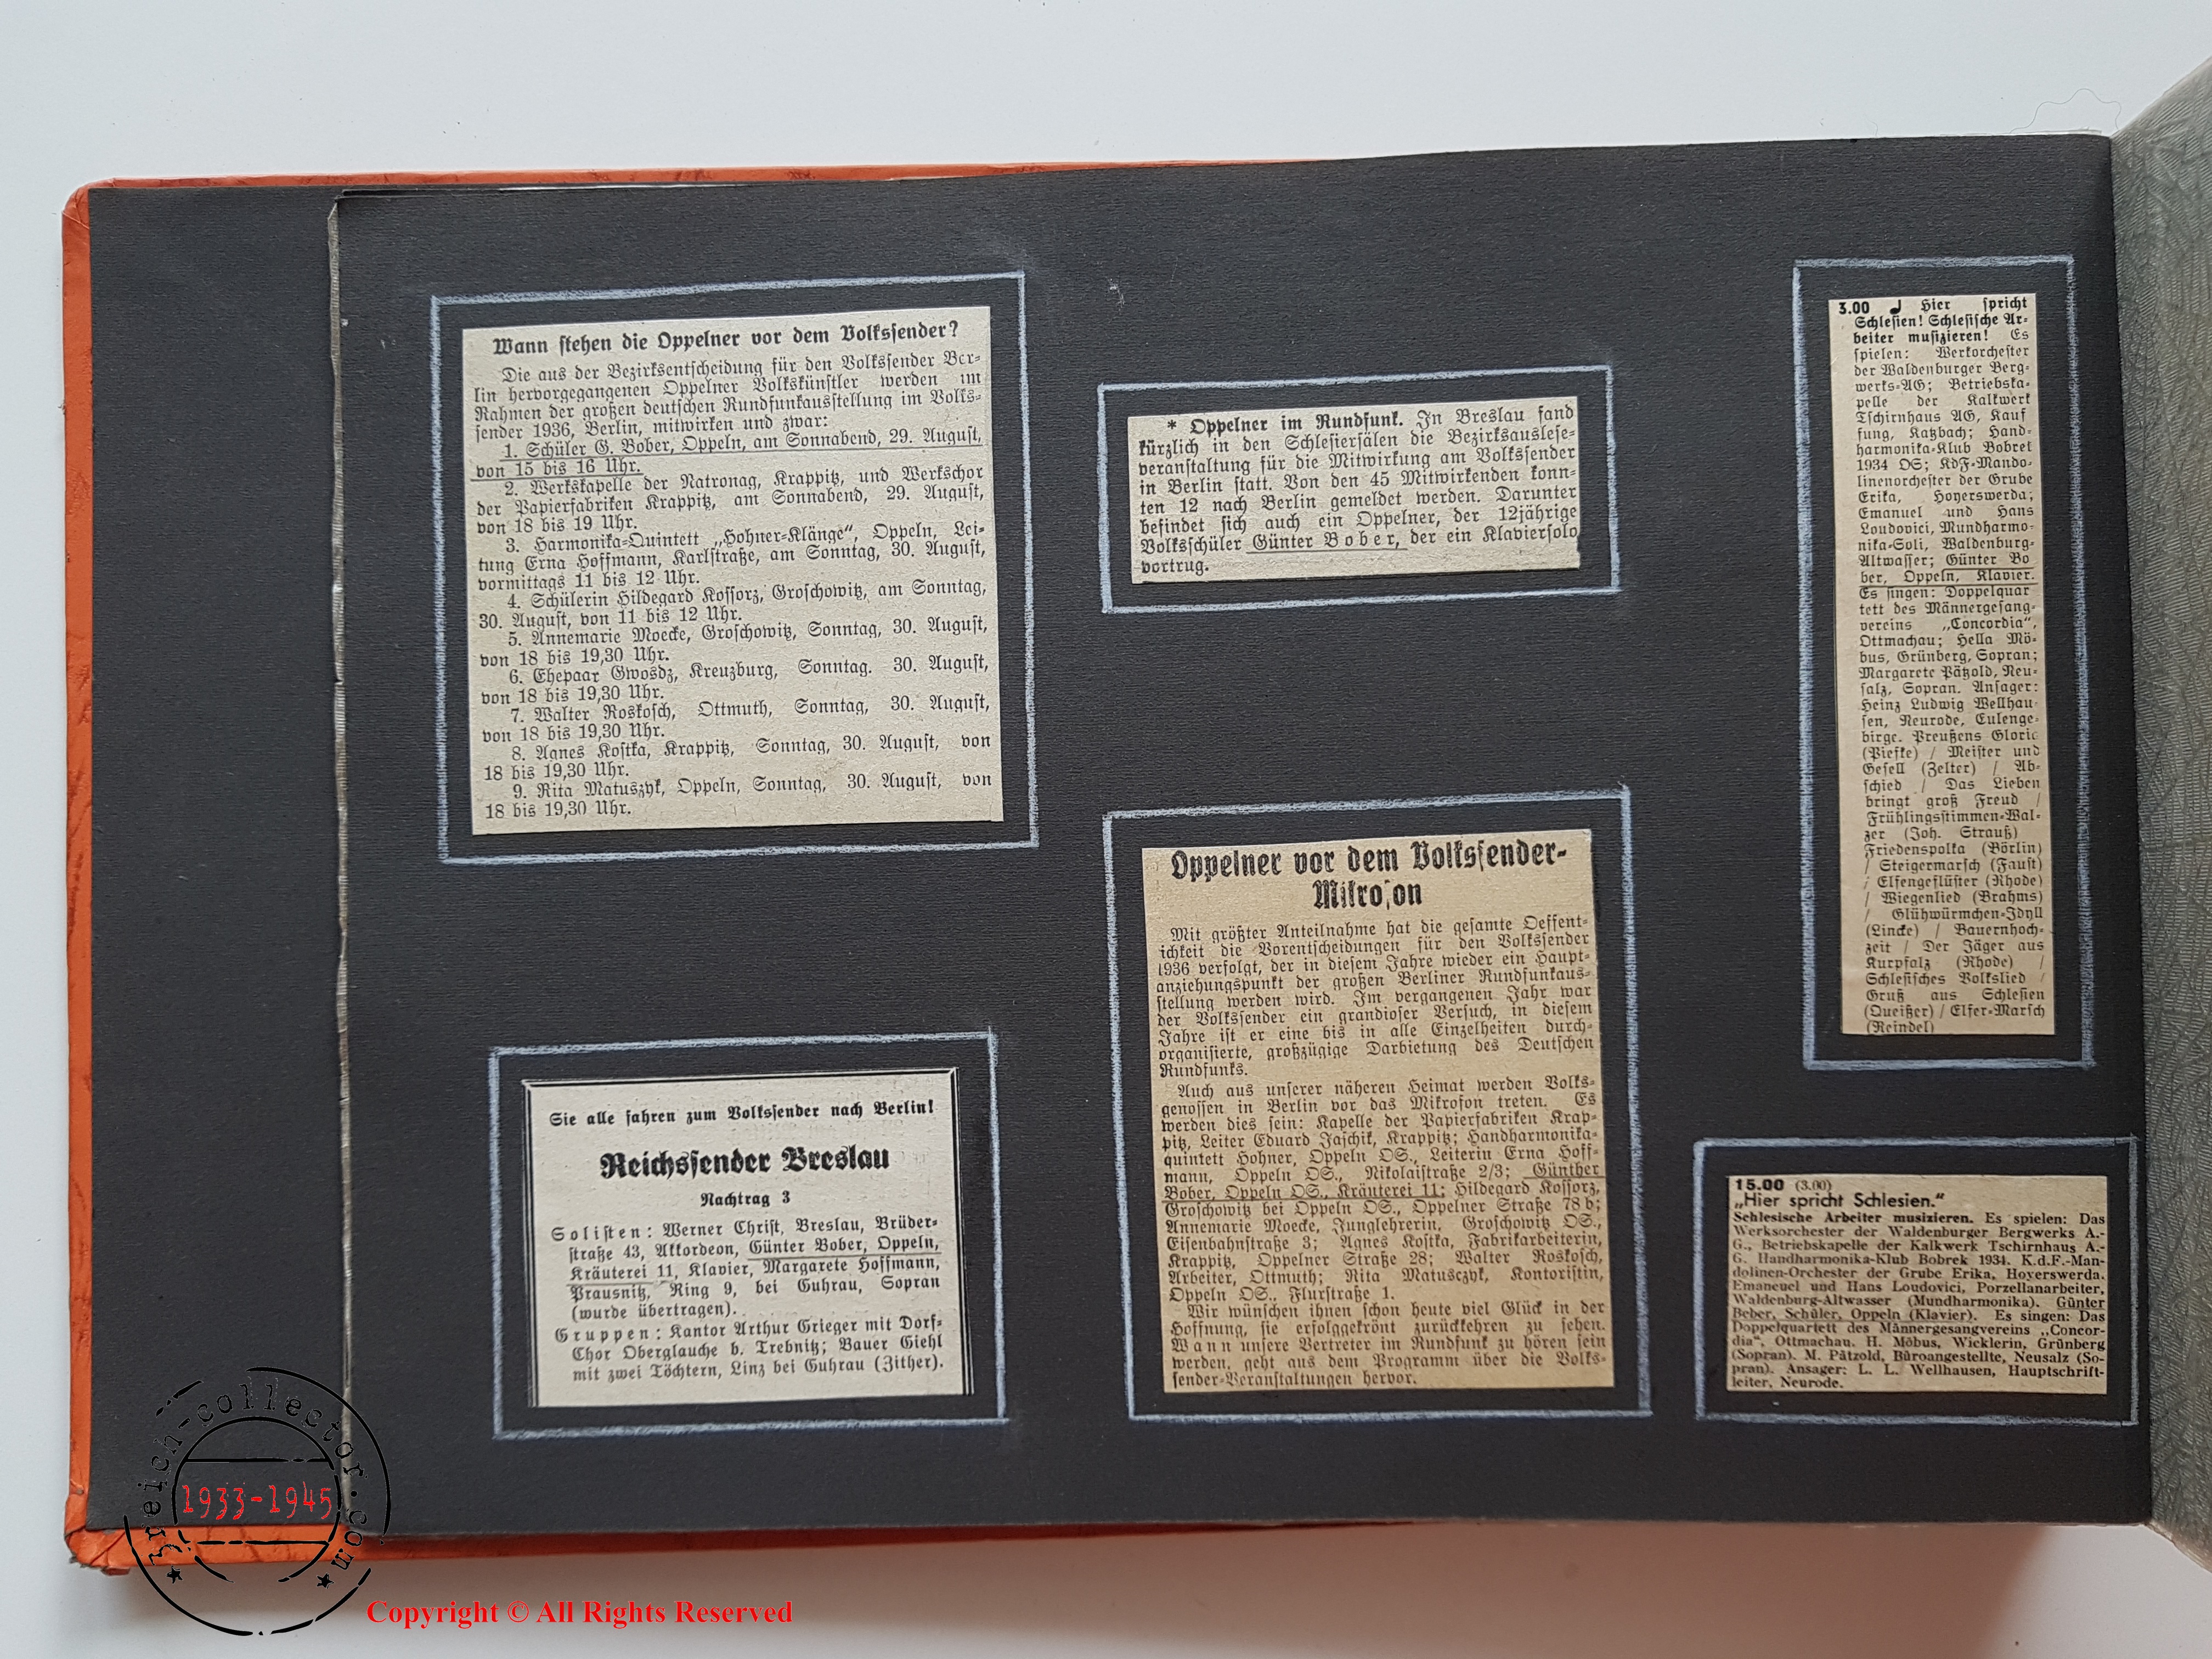 Wann stehen die Oppelner vor dem Volkssender?
Die aus der Bezirksentscheidung für den Volkssender Ber-
lin hervorgegangenen Oppelner Volkskünstler werden im
Rahmen der großen deutschen Rundfunkausstellung im Volks-
sender 1936, Berlin, mitwirken und zwar:
1. Schüler G. Bober, Oppeln, am Sonnabend, 29. August,
von 15 bis 16 Uhr.
2. Werkskapelle der Natronag, Krappitz, und Werkschor
der Papierfabriken Krappitz, am Sonnabend, 29. August,
von 18 bis 19 Uhr.
3. Harmonika-Quintett „Hohner-Klänge“, Oppeln, Lei-
tung Erna Hoffmann, Karlstraße, am Sonntag, 30. August,
vormittags 11 bis 12 Uhr.
4. Schülerin Hildegard Kossorz, Groschowitz, am Sonntag,
30. August, von 11 bis 12 Uhr.
5. Annemarie Moecke, Groschowitz, Sonntag, 30. August,
von 18 bis 19,30 Uhr.
6. Ehepaar Gwosdz, Kreuzburg, Sonntag. 30. August,
von 18 bis 19,30 Uhr.
7. Walter Roskosch, Ottmuth, Sonntag, 30. August,
von 18 bis 19,30 Uhr.
8. Agnes Kostka, Krappitz, Sonntag, 30. August, von
18 bis 19,30 Uhr.
9. Rita Matuszyk, Oppeln, Sonntag, 30. August, von
18 bis 19,30 Uhr.
Sie alle fahren zum Volkssender nach Berlin!
Reichssender Breslau
Nachtrag 3
Solisten: Werner Christ, Breslau, Brüder-
straße 43, Akkordeon, Günter Bober, Oppeln,
Kräuterei 11, Klavier, Margarete Hoffmann,
Prausnitz, Ring 9, bei Guhrau, Sopran
(wurde übertragen).
Gruppen: Kantor Arthur Grieger mit Dorf-
Chor Oberglauche b. Trebnitz; Bauer Giehl
mit zwei Töchtern, Linz bei Guhrau (Zither).
* Oppelner im Rundfunk. In Breslau fand
kürzlich in den Schlesiersälen die Bezirksauslese-
veranstaltung für die Mitwirkung am Volkssender
in Berlin statt. Von den 45 Mitwirkenden konn-
ten 12 nach Berlin gemeldet werden. Darunter
befindet sich auch ein Oppelner, der 12jährige
Volksschüler Günter Bober, der ein Klaviersolo
vortrug.
Oppelner vor dem Volkssender-
Mikrofon
Mit größter Anteilnahme hat die gesamte Oeffent-
ichkeit die Vorentscheidungen für den Volkssender
1936 verfolgt, der in diesem Jahre wieder ein Haupt-
anziehungspunkt der großen Berliner Rundfunkaus-
stellung werden wird. Im vergangenen Jahr war
der Volkssender ein grandioser Versuch, in diesem
Jahre ist er eine bis in alle Einzelheiten durch-
organisierte, großzügige Darbietung des Deutschen
Rundfunks.
Auch aus unserer näheren Heimat werden Volks-
genossen in Berlin vor das Mikrofon treten. Es
werden dies sein: Kapelle der Papierfabriken Krap-
pitz, Leiter Eduard Jaschik, Krappitz; Handharmonika-
quintett Hohner, Oppeln OS., Leiterin Erna Hoff-
mann, Oppeln OS., Nikolaistraße 2/3; Günther
Bober, Oppeln OS., Kräuterei 11; Hildegard Kossorz,
Groschowitz bei Oppeln OS., Oppelner Straße 78 b;
Annemarie Moecke, Junglehrerin, Groschowitz OS.,
Eisenbahnstraße 3; Agnes Kostka, Fabrikarbeiterin,
Krappitz, Oppelner Straße 28; Walter Roskosch,
Arbeiter, Ottmuth; Rita Matusczyk, Kontoristin,
Oppeln OS., Flurstraße 1.
Wir wünschen ihnen schon heute viel Glück in der
Hoffnung, sie erfolggekrönt zurückkehren zu sehen.
Wann unsere Vertreter im Rundfunk zu hören sein
werden, geht aus dem Programm über die Volks-
sender-Veranstaltungen hervor.
3.00 Hier spricht
Schlesien! Schlesische Ar-
beiter musizieren! Es
spielen: Werkorchester
der Waldenburger Berg-
werks-AG; Betriebska-
pelle der Kalkwerk
Tschirnhaus AG, Kauf
fung, Katzbach; Hand-
harmonika-Klub Bobrek
1934 OS; KdF-Mando-
linenorchester der Grube
Erika, Hoyerswerda;
Emanuel und Hans
Loudovici, Mundharmo-
nika-Soli, Waldenburg-
Altwasser; Günter Bo
ber, Oppeln, Klavier.
Es singen: Doppelquar
tett des Männergesang-
vereins „Concordia“,
Ottmachau; Hella Mö-
bus, Grünberg, Sopran;
Margarete Pätzold, Neu-
salz, Sopran. Ansager:
Heinz Ludwig Wellhau-
sen, Neurode, Eulenge-
birge. Preußens Gloria
(Piefke) / Meister und
Gesell (Zelter) / Ab-
schied / Das Lieben
bringt groß Freud /
Frühlingsstimmen-Wal-
zer (Joh. Strauß)
Friedenspolka (Börlin)
/ Steigermarsch (Faust)
/ Elfengeflüster (Rhode)
/ Wiegenlied (Brahms)
/ Glühwürmchen-Idyll
(Lincke) / Bauernhoch-
zeit / Der Jäger aus
Kurpfalz (Rhode) /
Schlesisches Volkslied /
Gruß aus Schlesien
(Queißer) / Elfer-Marsch
(Reindel)
15.00 (3.00)
„Hier spricht Schlesien.“
Schlesische Arbeiter musizieren. Es spielen: Das
Werksorchester der Waldenburger Bergwerks A.-
G., Betriebskapelle der Kalkwerk Tschirnhaus A.-
G. Handharmonika-Klub Bobrek 1934. K.d.F.-Man-
dolinen-Orchester der Grube Erika, Hoyerswerda.
Emaneuel und Hans Loudovici, Porzellanarbeiter,
Waldenburg-Altwasser (Mundharmonika). Günter
Beber, Schüler, Oppeln (Klavier). Es singen: Das
Doppelquartett des Männergesangvereins „Concor-
dia“, Ottmachau. H. Möbus, Wicklerin, Grünberg
(Sopran). M. Pätzold, Büroangestellte, Neusalz (So-
pran). Ansager: L. L. Wellhausen, Hauptschrift-
leiter, Neurode.
3reich-collector.com
1933-1945
Copyright © All Rights Reserved